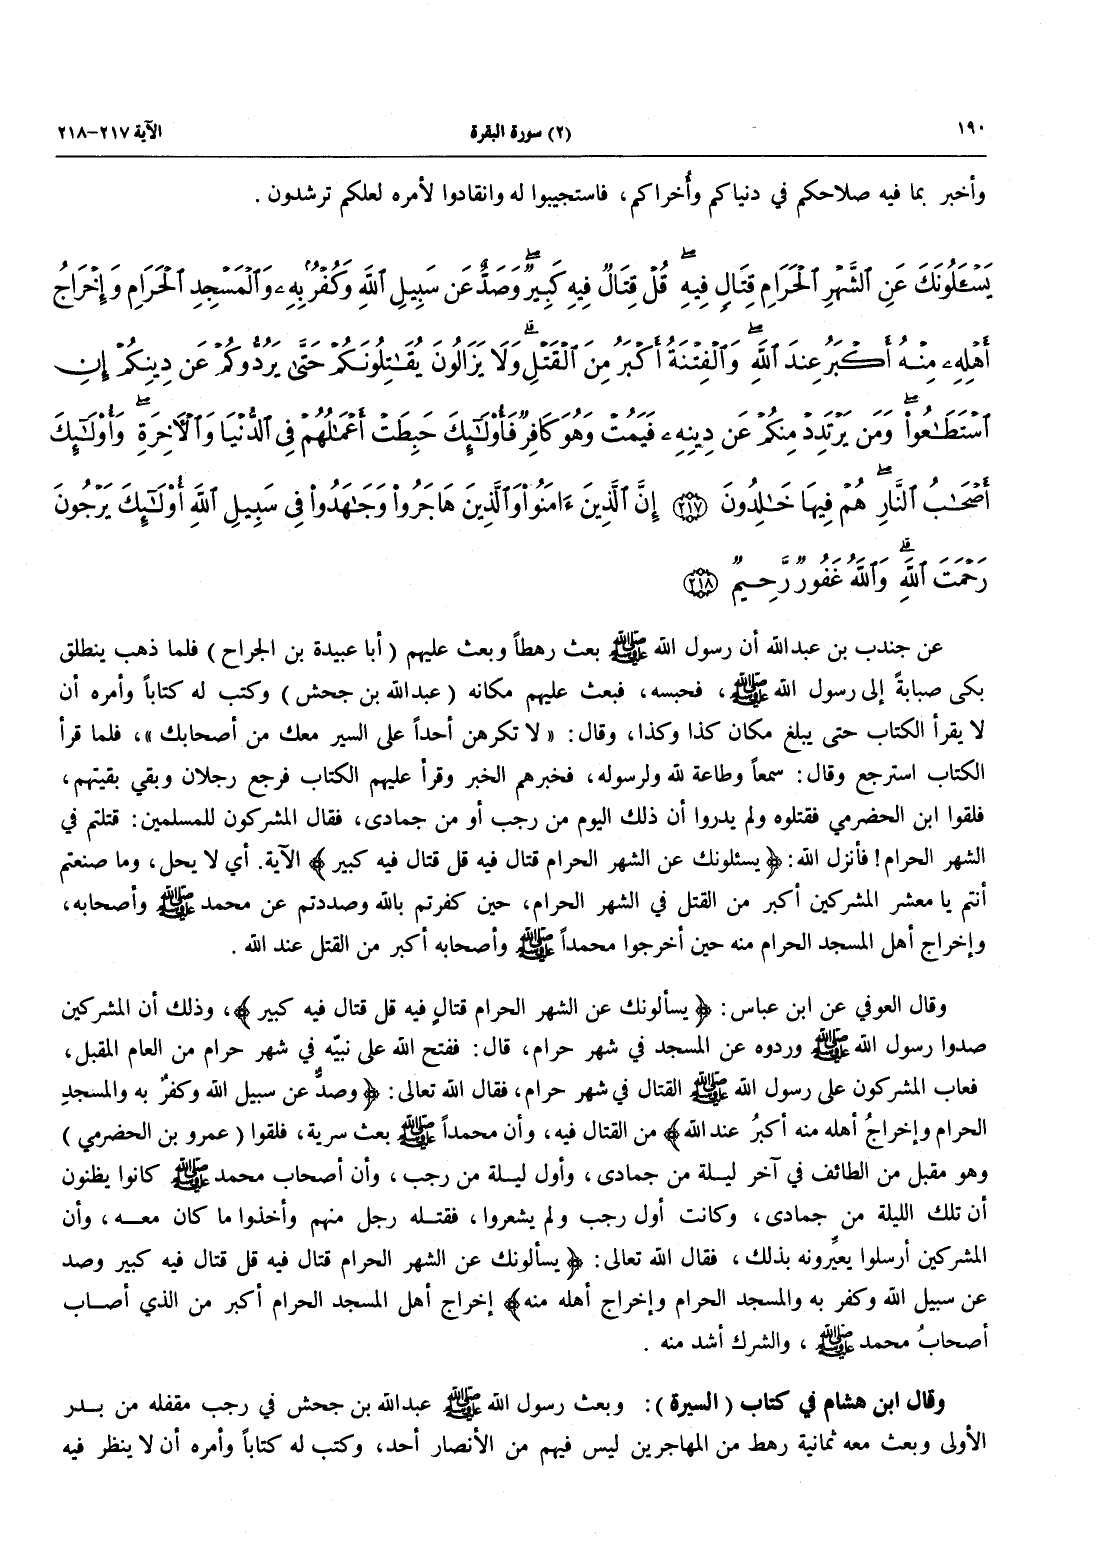 ١٩٠ (٢) سورة البقرة الآية ٢١٧-٢١٨
وأخبر بما فيه صلاحكم في دنياكم وأُخراكم، فاستجيبوا له وانقادوا لأمره لعلكم ترشدون .
يَسْـَٔلُونَكَ عَنِ ٱلشَّهْرِ ٱلْحَرَامِ قِتَالٍ فِيهِ ۖ قُلْ قِتَالٌ فِيهِ كَبِيرٌ ۖ وَصَدٌّ عَن سَبِيلِ ٱللَّهِ وَكُفْرٌۢ بِهِۦ وَٱلْمَسْجِدِ ٱلْحَرَامِ وَإِخْرَاجُ
أَهْلِهِۦ مِنْهُ أَكْبَرُ عِندَ ٱللَّهِ ۖ وَٱلْفِتْنَةُ أَكْبَرُ مِنَ ٱلْقَتْلِ ۗ وَلَا يَزَالُونَ يُقَـٰتِلُونَكُمْ حَتَّىٰ يَرُدُّوكُمْ عَن دِينِكُمْ إِنِ
ٱسْتَطَـٰعُوا۟ ۖ وَمَن يَرْتَدِدْ مِنكُمْ عَن دِينِهِۦ فَيَمُتْ وَهُوَ كَافِرٌ فَأُو۟لَـٰٓئِكَ حَبِطَتْ أَعْمَـٰلُهُمْ فِى ٱلدُّنْيَا وَٱلْـَٔاخِرَةِ ۖ وَأُو۟لَـٰٓئِكَ
أَصْحَـٰبُ ٱلنَّارِ ۖ هُمْ فِيهَا خَـٰلِدُونَ ٢١٧ إِنَّ ٱلَّذِينَ ءَامَنُوا۟ وَٱلَّذِينَ هَاجَرُوا۟ وَجَـٰهَدُوا۟ فِى سَبِيلِ ٱللَّهِ أُو۟لَـٰٓئِكَ يَرْجُونَ
رَحْمَتَ ٱللَّهِ ۗ وَٱللَّهُ غَفُورٌ رَّحِيمٌ ٢١٨
عن جندب بن عبدالله أن رسول الله ﷺ بعث رهطاً وبعث عليهم ( أبا عبيدة بن الجراح ) فلما ذهب ينطلق
بكى صبابةً إلى رسول الله ﷺ ، فحبسه، فبعث عليهم مكانه ( عبدالله بن جحش ) وكتب له كتاباً وأمره أن
لا يقرأ الكتاب حتى يبلغ مكان كذا وكذا، وقال: « لا تكرهن أحداً على السير معك من أصحابك »، فلما قرأ
الكتاب استرجع وقال: سمعاً وطاعة لله ولرسوله، فخبرهم الخبر وقرأ عليهم الكتاب فرجع رجلان وبقي بقيتهم،
فلقوا ابن الحضرمي فقتلوه ولم يدروا أن ذلك اليوم من رجب أو من جمادى، فقال المشركون للمسلمين: قتلتم في
الشهر الحرام! فأنزل الله: ﴿ يسئلونك عن الشهر الحرام قتال فيه قل قتال فيه كبير ﴾ الآية. أي لا يحل، وما صنعتم
أنتم يا معشر المشركين أكبر من القتل في الشهر الحرام، حين كفرتم بالله وصددتم عن محمد ﷺ وأصحابه،
وإخراج أهل المسجد الحرام منه حين أخرجوا محمداً ﷺ وأصحابه أكبر من القتل عند الله .
وقال العوفي عن ابن عباس: ﴿ يسألونك عن الشهر الحرام قتالٍ فيه قل قتال فيه كبير ﴾، وذلك أن المشركين
صدوا رسول الله ﷺ وردوه عن المسجد في شهر حرام، قال: ففتح الله على نبيّه في شهر حرام من العام المقبل،
فعاب المشركون على رسول الله ﷺ القتال في شهر حرام، فقال الله تعالى: ﴿ وصدٌّ عن سبيل الله وكفرٌ به والمسجدِ
الحرام وإخراجُ أهله منه أكبرُ عند الله ﴾ من القتال فيه، وأن محمداً ﷺ بعث سرية، فلقوا ( عمرو بن الحضرمي )
وهو مقبل من الطائف في آخر ليلة من جمادى، وأول ليلة من رجب، وأن أصحاب محمد ﷺ كانوا يظنون
أن تلك الليلة من جمادى، وكانت أول رجب ولم يشعروا، فقتله رجل منهم وأخذوا ما كان معه، وأن
المشركين أرسلوا يعيِّرونه بذلك، فقال الله تعالى: ﴿ يسألونك عن الشهر الحرام قتال فيه قل قتال فيه كبير وصد
عن سبيل الله وكفر به والمسجد الحرام وإخراج أهله منه﴾ إخراج أهل المسجد الحرام أكبر من الذي أصاب
أصحابُ محمد ﷺ ، والشرك أشد منه .
وقال ابن هشام في كتاب ( السيرة ): وبعث رسول الله ﷺ عبدالله بن جحش في رجب مقفله من بدر
الأولى وبعث معه ثمانية رهط من المهاجرين ليس فيهم من الأنصار أحد، وكتب له كتاباً وأمره أن لا ينظر فيه